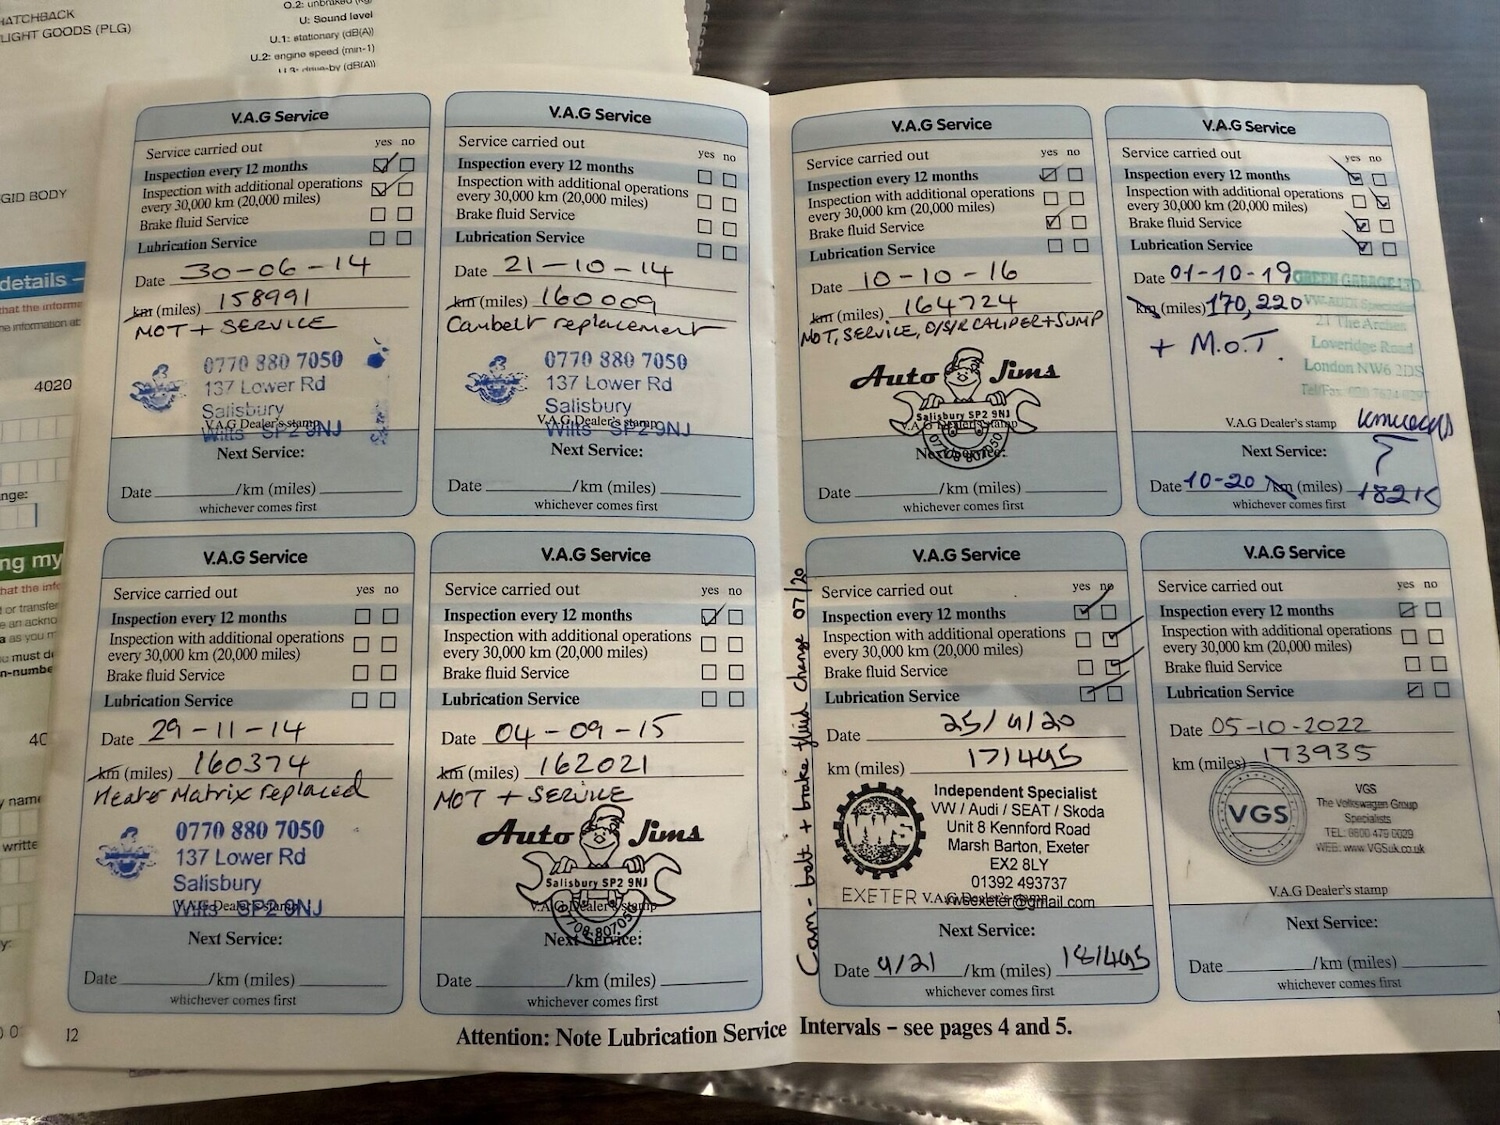 HATCHBACK
LIGHT GOODS (PLG)
U: Sound level
U.1: stationary (dB(A))
U.2: engine speed (min-1)
U.3: drive-by (dB(A))
GID BODY
details –
4020
nge:
ng my
V.A.G Service
Service carried out yes no
Inspection every 12 months
Inspection with additional operations
every 30,000 km (20,000 miles)
Brake fluid Service
Lubrication Service
Date 30-06-14
km (miles) 158991
MOT + SERVICE
0770 880 7050
137 Lower Rd
Salisbury
V.A.G Dealer's stamp
Wilts SP2 9NJ
Next Service:
Date /km (miles)
whichever comes first
V.A.G Service
Service carried out yes no
Inspection every 12 months
Inspection with additional operations
every 30,000 km (20,000 miles)
Brake fluid Service
Lubrication Service
Date 21-10-14
km (miles) 160009
Cambelt replacement
0770 880 7050
137 Lower Rd
Salisbury
V.A.G Dealer's stamp
Wilts SP2 9NJ
Next Service:
Date /km (miles)
whichever comes first
V.A.G Service
Service carried out yes no
Inspection every 12 months
Inspection with additional operations
every 30,000 km (20,000 miles)
Brake fluid Service
Lubrication Service
Date 10-10-16
km (miles) 164724
MOT, SERVICE, O/S/R CALIPER + SUMP
Auto Jims
Salisbury SP2 9NJ
V.A.G Dealer's stamp
Next Service:
Date /km (miles)
whichever comes first
V.A.G Service
Service carried out yes no
Inspection every 12 months
Inspection with additional operations
every 30,000 km (20,000 miles)
Brake fluid Service
Lubrication Service
Date 01-10-19
GREEN GARAGE LTD
km (miles) 170,220
VW-AUDI Specialist
21 The Arches
+ M.O.T.
Loveridge Road
London NW6 2DS
Tel/Fax: 020 7624
V.A.G Dealer's stamp
Next Service:
Date 10-20 /km (miles) 182K
whichever comes first
V.A.G Service
Service carried out yes no
Inspection every 12 months
Inspection with additional operations
every 30,000 km (20,000 miles)
Brake fluid Service
Lubrication Service
Date 29-11-14
km (miles) 160374
Heater Matrix replaced
0770 880 7050
137 Lower Rd
Salisbury
V.A.G Dealer's stamp
Wilts SP2 9NJ
Next Service:
Date /km (miles)
whichever comes first
V.A.G Service
Service carried out yes no
Inspection every 12 months
Inspection with additional operations
every 30,000 km (20,000 miles)
Brake fluid Service
Lubrication Service
Date 04-09-15
km (miles) 162021
MOT + SERVICE
Auto Jims
Salisbury SP2 9NJ
V.A.G Dealer's stamp
Next Service:
Date /km (miles)
whichever comes first
Cam-belt + brake fluid change 07/20
V.A.G Service
Service carried out yes no
Inspection every 12 months
Inspection with additional operations
every 30,000 km (20,000 miles)
Brake fluid Service
Lubrication Service
Date 25/9/20
km (miles) 171495
Independent Specialist
VW / Audi / SEAT / Skoda
Unit 8 Kennford Road
Marsh Barton, Exeter
EX2 8LY
01392 493737
EXETER
V.A.G Dealer's stamp
vwsexeter@gmail.com
Next Service:
Date 9/21 /km (miles) 181495
whichever comes first
V.A.G Service
Service carried out yes no
Inspection every 12 months
Inspection with additional operations
every 30,000 km (20,000 miles)
Brake fluid Service
Lubrication Service
Date 05-10-2022
km (miles) 173935
VGS
VGS
The Volkswagen Group
Specialists
TEL: 0800 479 0029
WEB: www.VGSuk.co.uk
V.A.G Dealer's stamp
Next Service:
Date /km (miles)
whichever comes first
12
Attention: Note Lubrication Service Intervals – see pages 4 and 5.